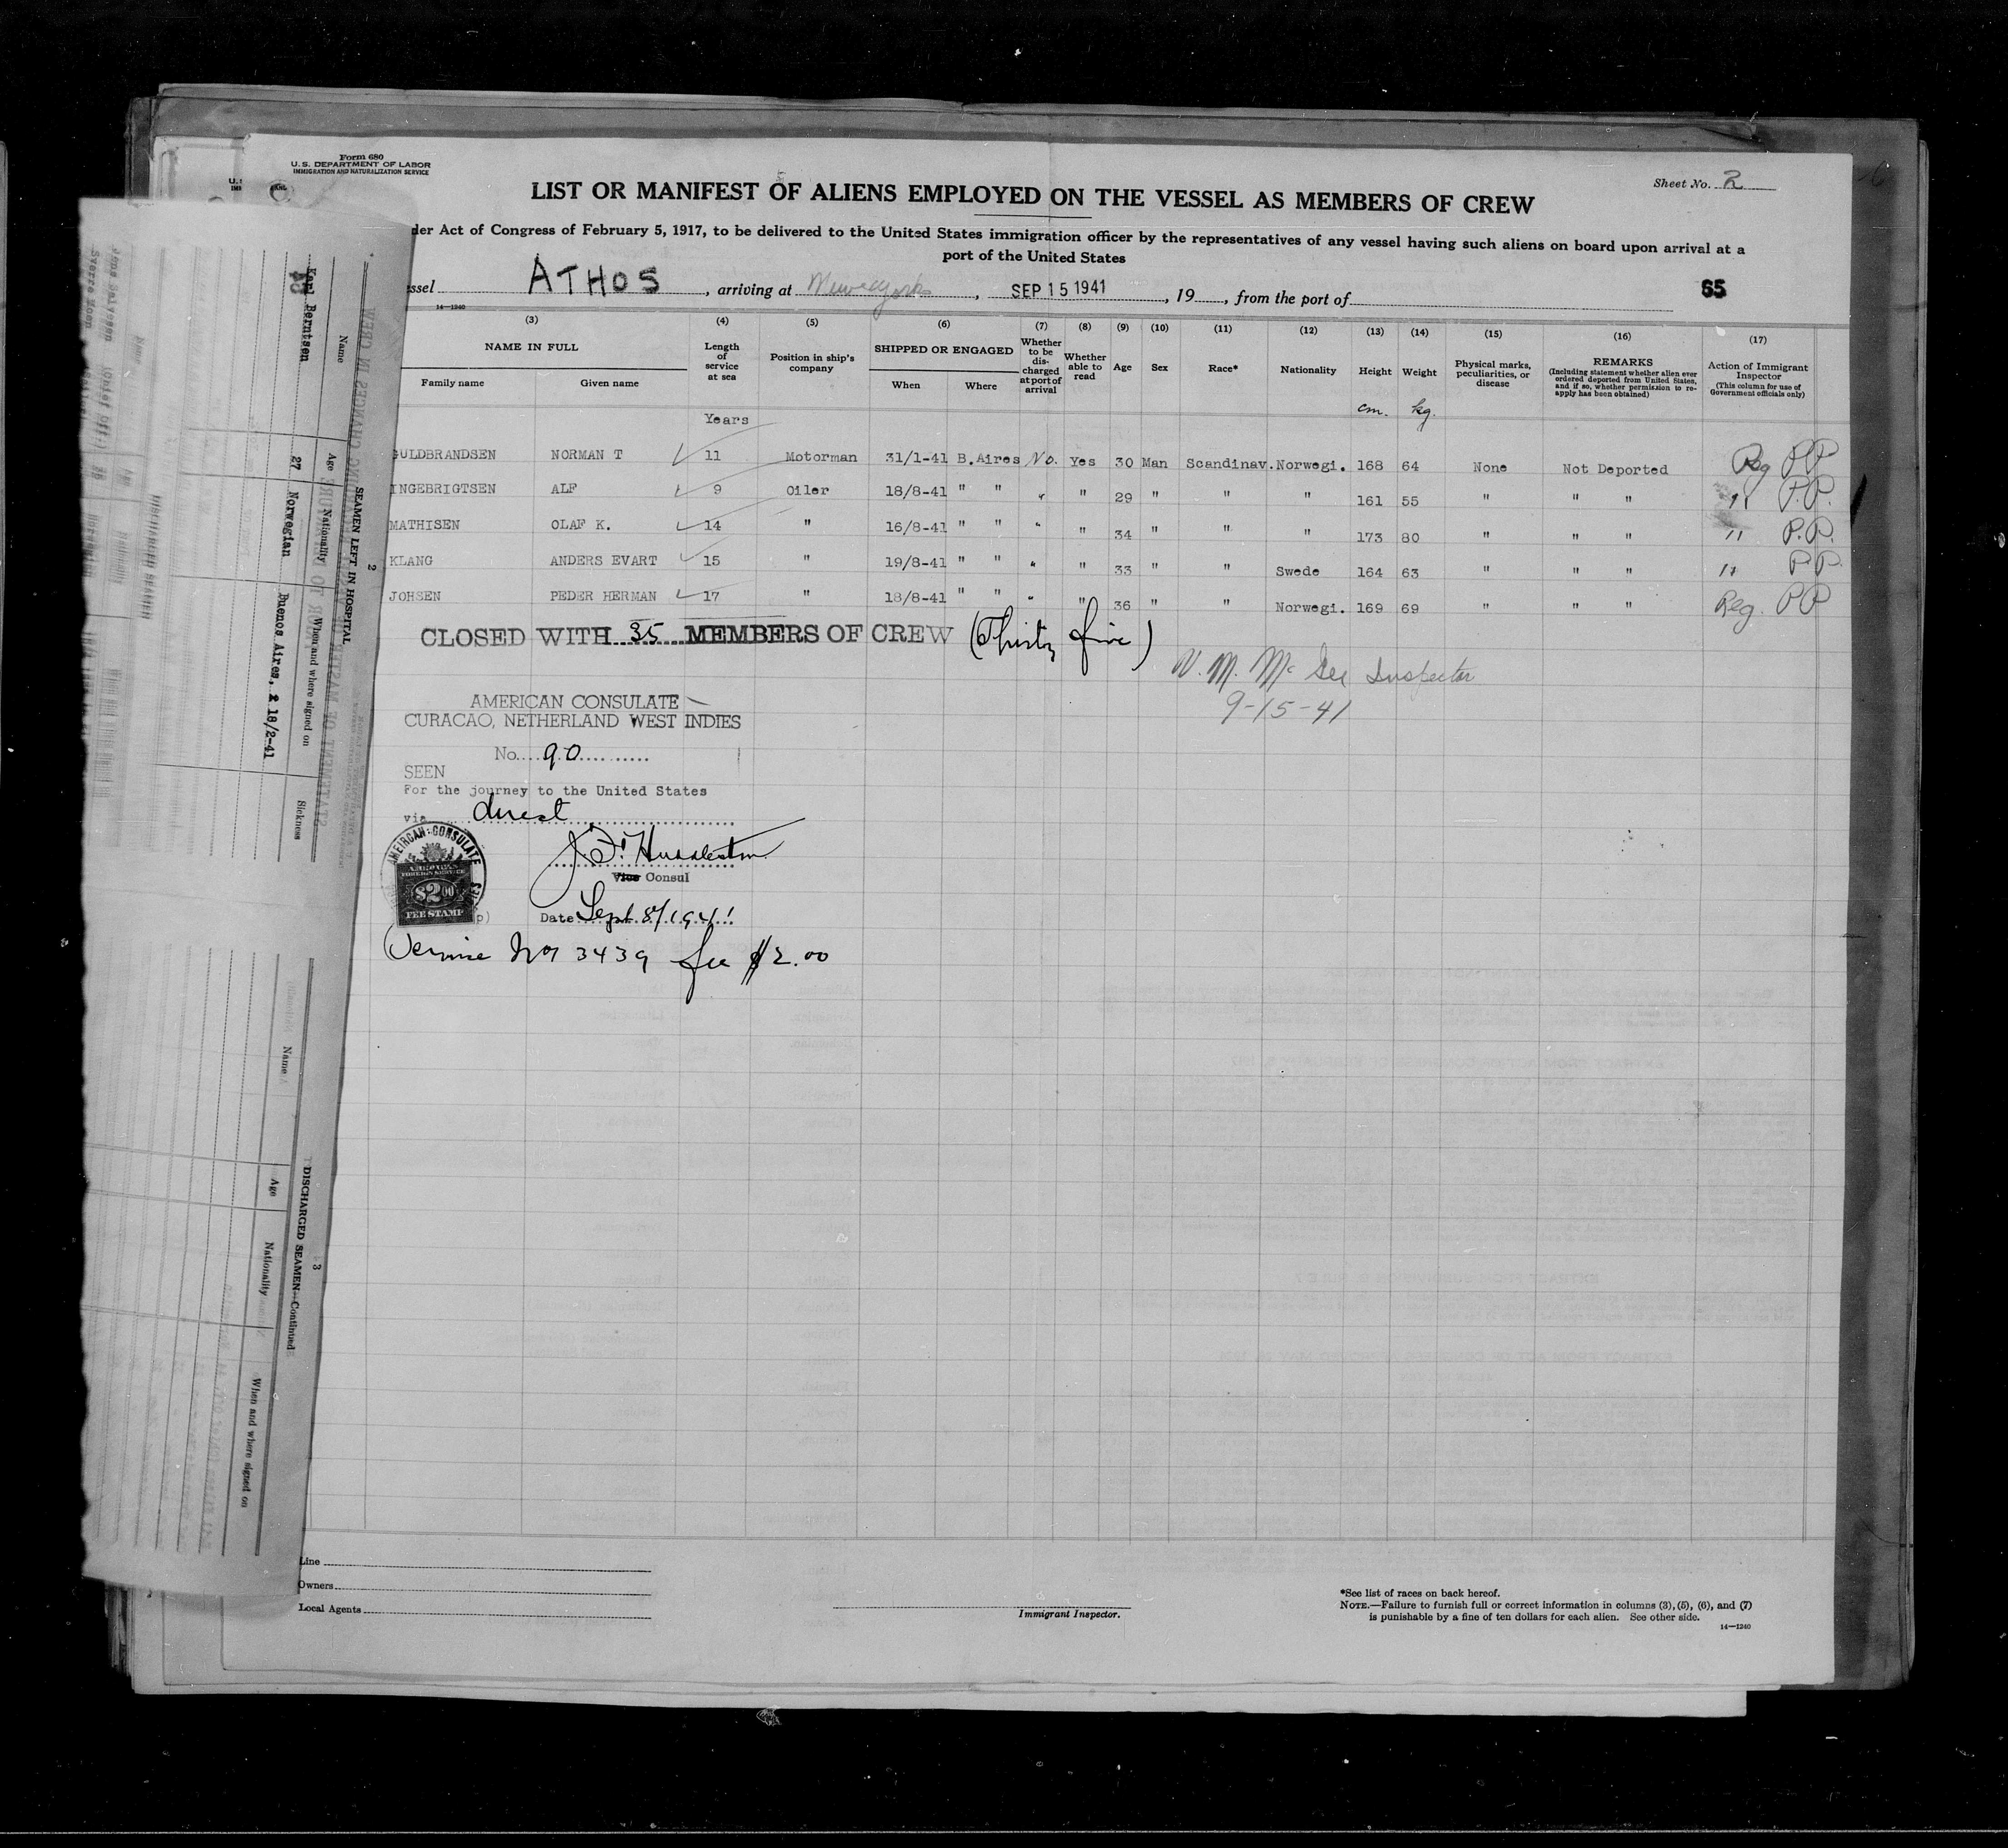 Form 680
U. S. DEPARTMENT OF LABOR
IMMIGRATION AND NATURALIZATION SERVICE
Sheet No. 2
LIST OR MANIFEST OF ALIENS EMPLOYED ON THE VESSEL AS MEMBERS OF CREW
der Act of Congress of February 5, 1917, to be delivered to the United States immigration officer by the representatives of any vessel having such aliens on board upon arrival at a
port of the United States
ssel ATHOS, arriving at New York, SEP 15 1941, 19, from the port of
65
14—1240
(3) (4) (5) (6) (7) (8) (9) (10) (11) (12) (13) (14) (15) (16) (17)
NAME IN FULL
Family name Given name
Length of service at sea
Position in ship's company
SHIPPED OR ENGAGED
When Where
Whether to be discharged at port of arrival
Whether able to read
Age Sex Race* Nationality Height Weight
Physical marks, peculiarities, or disease
REMARKS
(Including statement whether alien ever ordered deported from United States, and if so, whether permission to reapply has been obtained)
Action of Immigrant Inspector
(This column for use of Government officials only)
Years cm. kg.
GULDBRANDSEN NORMAN T 11 Motorman 31/1-41 B.Aires No. Yes 30 Man Scandinav. Norwegi. 168 64 None Not Deported Reg PP
INGEBRIGTSEN ALF 9 Oiler 18/8-41 " " " " 29 " " " 161 55 " " " " P.P.
MATHISEN OLAF K. 14 " 16/8-41 " " " " 34 " " " 173 80 " " " " P.P.
KLANG ANDERS EVART 15 " 19/8-41 " " " " 33 " " Swede 164 63 " " " " PP
JOHSEN PEDER HERMAN 17 " 18/8-41 " " " " 36 " " Norwegi. 169 69 " " " Reg. PP
CLOSED WITH 35 MEMBERS OF CREW (Thirty five)
V. M. McGee Inspector
9-15-41
AMERICAN CONSULATE
CURACAO, NETHERLAND WEST INDIES
No. 90
SEEN
For the journey to the United States
via direct
AMERICAN CONSULATE
FOREIGN SERVICE
$2.00
FEE STAMP
J. F. Huddleston
Vice Consul
Date Sept. 8/1941
Service No 3439 fee $2.00
2
SEAMEN LEFT IN HOSPITAL
Name Age Nationality When and where signed on Sickness
Karl Berntsen 27 Norwegian Buenos Aires, 18/2-41
3
DISCHARGED SEAMEN—Continued
Name Age Nationality When and where signed on
Line
Owners
Local Agents
Immigrant Inspector.
*See list of races on back hereof.
NOTE.—Failure to furnish full or correct information in columns (3), (5), (6), and (7)
is punishable by a fine of ten dollars for each alien. See other side.
14—1240